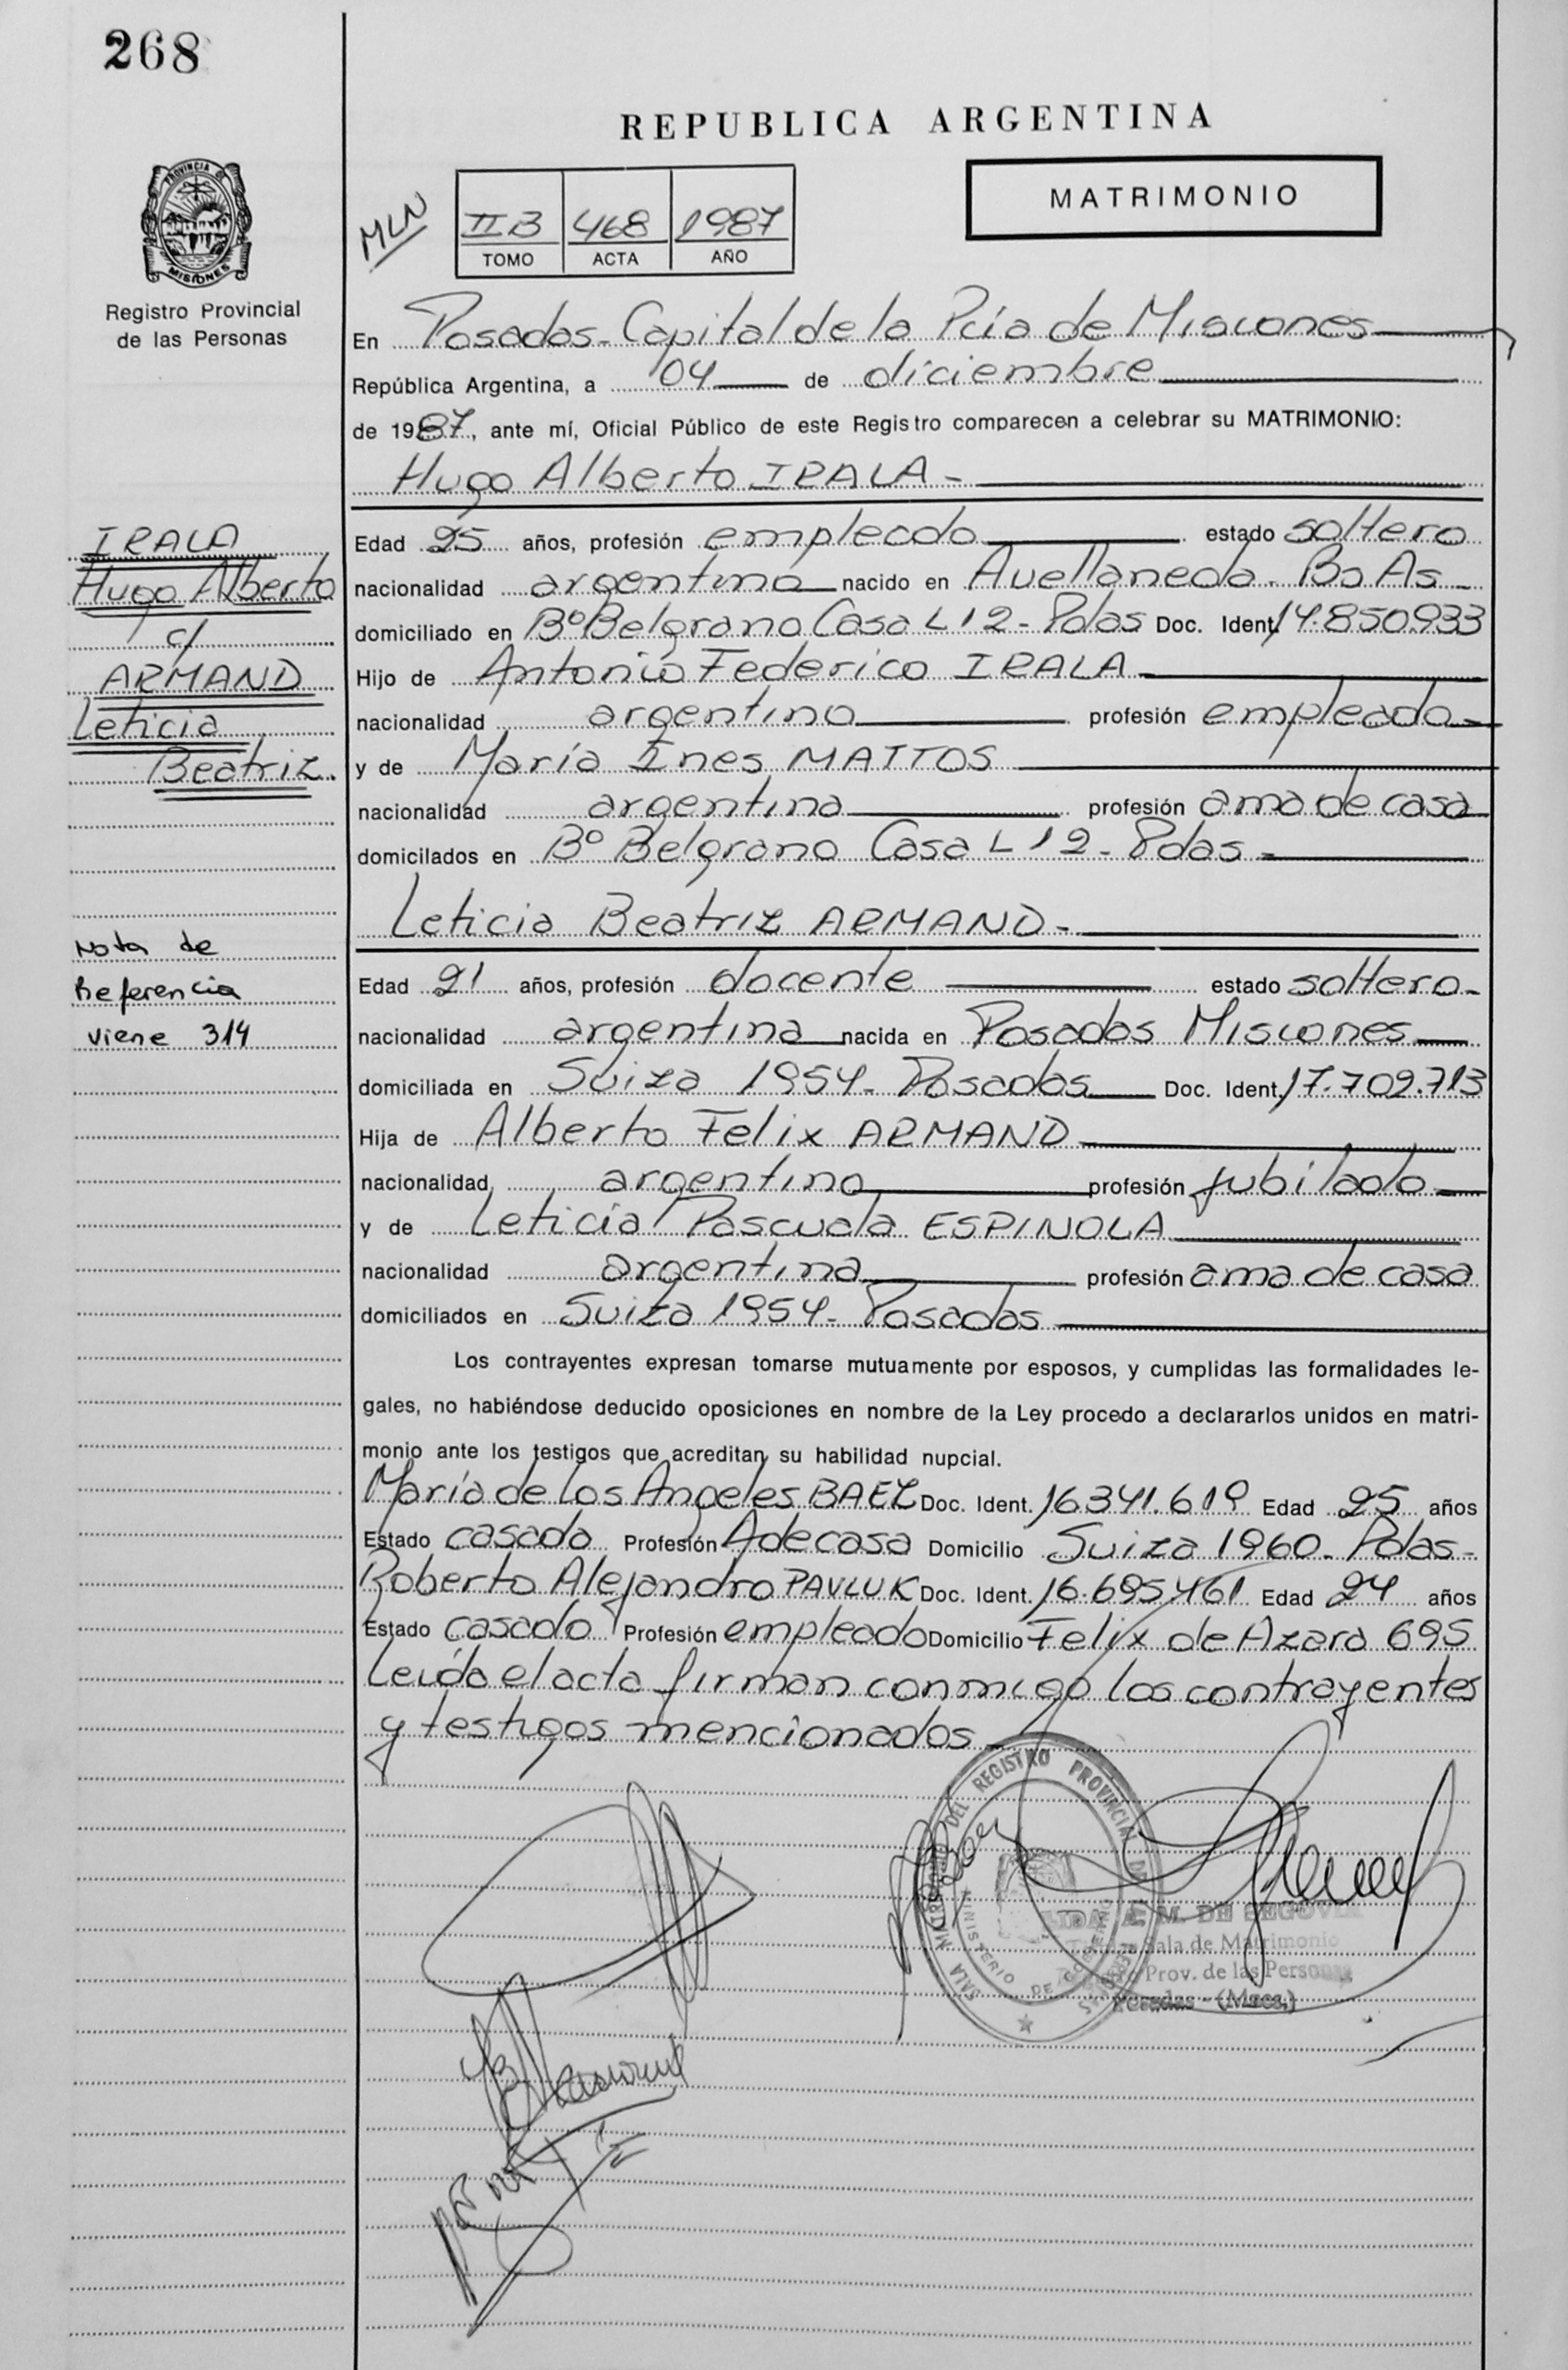 268
REPUBLICA ARGENTINA
MATRIMONIO
MLN
II B 468 1987
TOMO ACTA AÑO
PROVINCIA DE
MISIONES
Registro Provincial
de las Personas
En Posadas - Capital de la Pcia de Misiones
República Argentina, a 04 de diciembre
de 1987, ante mí, Oficial Público de este Registro comparecen a celebrar su MATRIMONIO:
Hugo Alberto IRALA -
IRALA
Hugo Alberto
c/
ARMAND
Leticia
Beatriz.
Edad 25 años, profesión empleado estado soltero
nacionalidad argentino nacido en Avellaneda - Bs As -
domiciliado en Bº Belgrano Casa L 12 - Pdas Doc. Ident. 14.850.933
Hijo de Antonio Federico IRALA
nacionalidad argentino profesión empleado -
y de María Ines MATTOS
nacionalidad argentina profesión ama de casa
domicilados en Bº Belgrano Casa L 12 - Pdas -
Leticia Beatriz ARMAND -
Nota de
Referencia
viene 314
Edad 21 años, profesión docente estado soltera -
nacionalidad argentina nacida en Posadas Misiones
domiciliada en Suiza 1954 - Posadas Doc. Ident. 17.709.713
Hija de Alberto Felix ARMAND
nacionalidad argentino profesión jubilado
y de Leticia Pascuala ESPINOLA
nacionalidad argentina profesión ama de casa
domiciliados en Suiza 1954 - Posadas
Los contrayentes expresan tomarse mutuamente por esposos, y cumplidas las formalidades le-
gales, no habiéndose deducido oposiciones en nombre de la Ley procedo a declararlos unidos en matri-
monio ante los testigos que acreditan su habilidad nupcial.
María de los Angeles BAEZ Doc. Ident. 16.341.619 Edad 25 años
Estado casada Profesión A de casa Domicilio Suiza 1960 - Pdas -
Roberto Alejandro PAVLUK Doc. Ident. 16.695.461 Edad 24 años
Estado casado Profesión empleado Domicilio Felix de Azara 695
Leída el acta firman conmigo los contrayentes
y testigos mencionados -
DEL REGISTRO PROVINCIAL DE
SALA
MINISTERIO DE
M. DE SEGOVIA
Sala de Matrimonio
Prov. de las Personas
Posadas - (Mnes.)